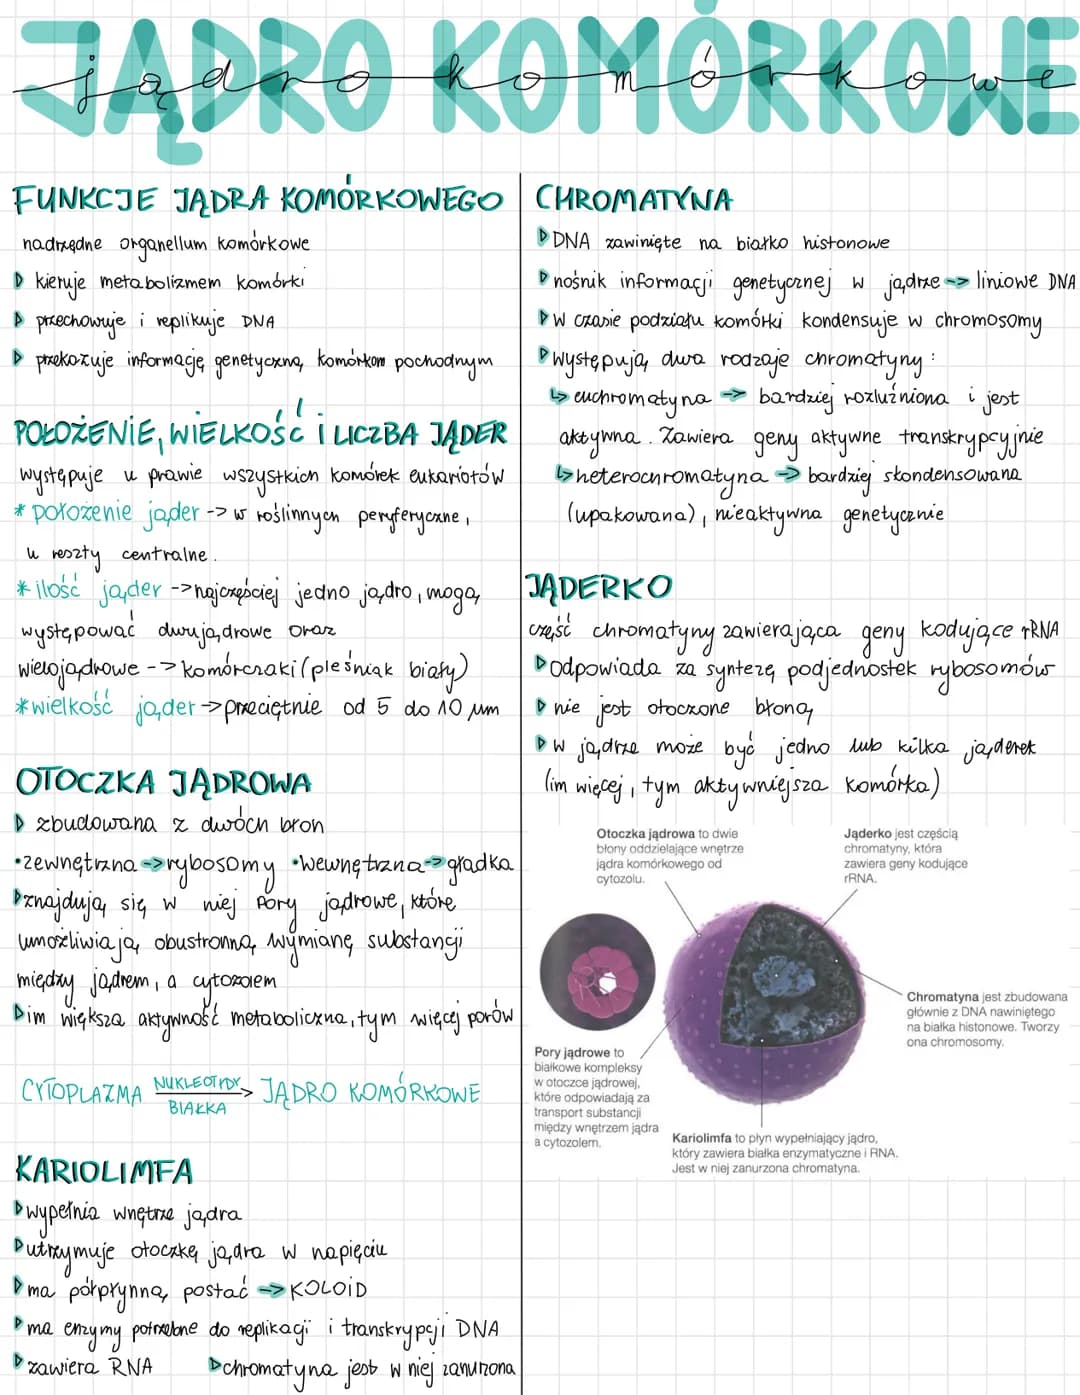 JĄDRO KOMÓRKOWE
jądro komórkowe
FUNKCJE JĄDRA KOMÓRKOWEGO
nadrzędne organellum komórkowe
▷ kieruje metabolizmem komórki
▷ przechowuje i replikuje DNA
▷ przekazuje informację genetyczną komórkom pochodnym
POŁOŻENIE, WIELKOŚĆ i LICZBA JĄDER
występuje u prawie wszystkich komórek eukariotów
* położenie jąder -> w roślinnych peryferyczne,
u reszty centralne.
* ilość jąder -> najczęściej jedno jądro, mogą
występować dwujądrowe oraz
wielojądrowe -> komórczaki (pleśniak biały)
* wielkość jąder -> przeciętnie od 5 do 10 μm
OTOCZKA JĄDROWA
▷ zbudowana z dwóch błon
•zewnętrzna -> rybosomy •wewnętrzna -> gładka
▷ znajdują się w niej pory jądrowe, które
umożliwiają obustronną wymianę substancji
między jądrem, a cytozolem
▷ im większa aktywność metaboliczna, tym więcej porów
CYTOPLAZMA NUKLEOTYDY BIAŁKA -> JĄDRO KOMÓRKOWE
KARIOLIMFA
▷ wypełnia wnętrze jądra
▷ utrzymuje otoczkę jądra w napięciu
▷ ma półpłynną postać -> KOLOID
▷ ma enzymy potrzebne do replikacji i transkrypcji DNA
▷ zawiera RNA ▷ chromatyna jest w niej zanurzona
CHROMATYNA
▷ DNA zawinięte na białko histonowe
▷ nośnik informacji genetycznej w jądrze -> liniowe DNA
▷ w czasie podziału komórki kondensuje w chromosomy
▷ występują dwa rodzaje chromatyny:
↳ euchromatyna -> bardziej rozluźniona i jest
aktywna. Zawiera geny aktywne transkrypcyjnie
↳ heterochromatyna -> bardziej skondensowana
(upakowana), nieaktywna genetycznie
JĄDERKO
część chromatyny zawierająca geny kodujące rRNA
▷ odpowiada za syntezę podjednostek rybosomów
▷ nie jest otoczone błoną
▷ w jądrze może być jedno lub kilka jąderek
(im więcej, tym aktywniejsza komórka)
Otoczka jądrowa to dwie
błony oddzielające wnętrze
jądra komórkowego od
cytozolu.
Jąderko jest częścią
chromatyny, która
zawiera geny kodujące
rRNA.
Chromatyna jest zbudowana
głównie z DNA nawiniętego
na białka histonowe. Tworzy
ona chromosomy.
Pory jądrowe to
białkowe kompleksy
w otoczce jądrowej,
które odpowiadają za
transport substancji
między wnętrzem jądra
a cytozolem.
Kariolimfa to płyn wypełniający jądro,
który zawiera białka enzymatyczne i RNA.
Jest w niej zanurzona chromatyna.